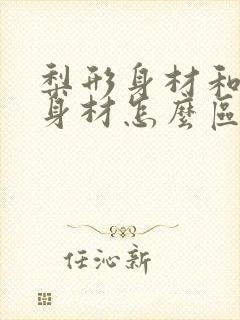 梨形身材和
身材怎麼區
任沁新